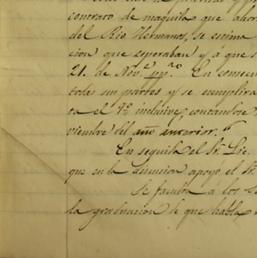 contrato de maquila que ahor
del Rio Hermanos, se estima
cion que esperaban y á que s
21. de Nov.e pp.o En consecu
todas sus partes y se cumplira
ta el 9º inclusive, contandose
viembre del año anterior.
En seguida el Sr. Lic.
que en la discusion apoyó el Sr.
Se faculta á los
la graduacion de que habla